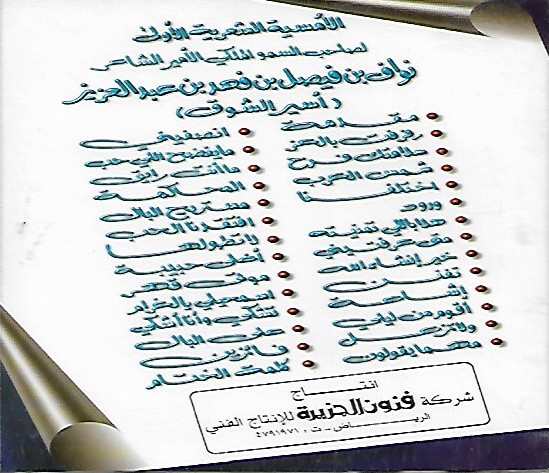 الأمسية الشعرية الأولى
لصاحب السمو الملكي الأمير الشاعر
نواف بن فيصل بن فهد بن عبدالعزيز
(أسير الشوق)
مقدمة
رفرفت بالعز
طالعتك فرح
شمس العرب
اختلفنا
ورود
هلا باللي تمنيته
متى عرفتيني
خير إنشاء الله
تفنن
إشاعة
أقوم من ليلي
ولا تزعل
مهما يقولون
انصفيني
ما يفضح اللي حب
ما انت رايق
المحكمة
مستريح البال
افتقدنا الحب
لا تطولها
أغلى حبيبة
موتي قهر
اسمحيلي بالغرام
تشكي وأنا أشكي
على البال
فائزين
كلمة الختام
انتاج
شركة فنون الجزيرة للإنتاج الفني
الرياض - ت : ٤٧٩١٩٧١